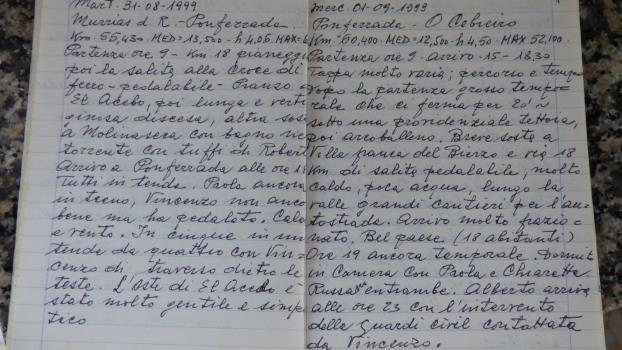 Mart. 31-08-1999
Murrias d R. - Ponferrada
Km. 55,430 MED=13,500 - h 4,06. MAX
Partenza ore 9 - Km 18 pianeggi
poi la salita alla Croce di
ferro - pedalabile - Pranzo a
El Acebo, poi lunga e verti
ginosa discesa, altra sos
a Molinaseca con bagno ne
torrente con tuffi di Robert
Arrivo a Ponferrada alle ore
tutti in tenda. Paola ancora
in treno, Vincenzo non anco
bene ma ha pedalato. Caldo
e vento. In cinque in un
tenda da quattro con Vin-
cenzo di traverso dietro le
teste. L'oste di El Acebo è
stato molto gentile e simpa
tico
merc. 01-09-1999
Ponferrada - O Cebreiro
Km. 60,400 - MED=12,500 - h 4,50 - MAX 52,100
Partenza ore 9 - arrivo - 15 - 18,30
Tappa molto varia; percorso e tempo
Dopo la partenza grosso tempo=
rale che ci ferma per 20'
sotto una providenziale tettoia,
poi arcobaleno. Breve sosta a
Villa franca del Bierzo e via 18
Km di salita pedalabile, molto
caldo, poca acqua, lungo la
valle grandi cantieri per l'au
tostrada. Arrivo molto frazio=
nato. Bel paese (18 abitanti)
Ore 19 ancora temporale. Dormit
in Camera con Paola e Chiaretta.
Russano entrambe. Alberto arriva
alle ore 23 con l'intervento
delle guardi civil contattata
da Vincenzo.